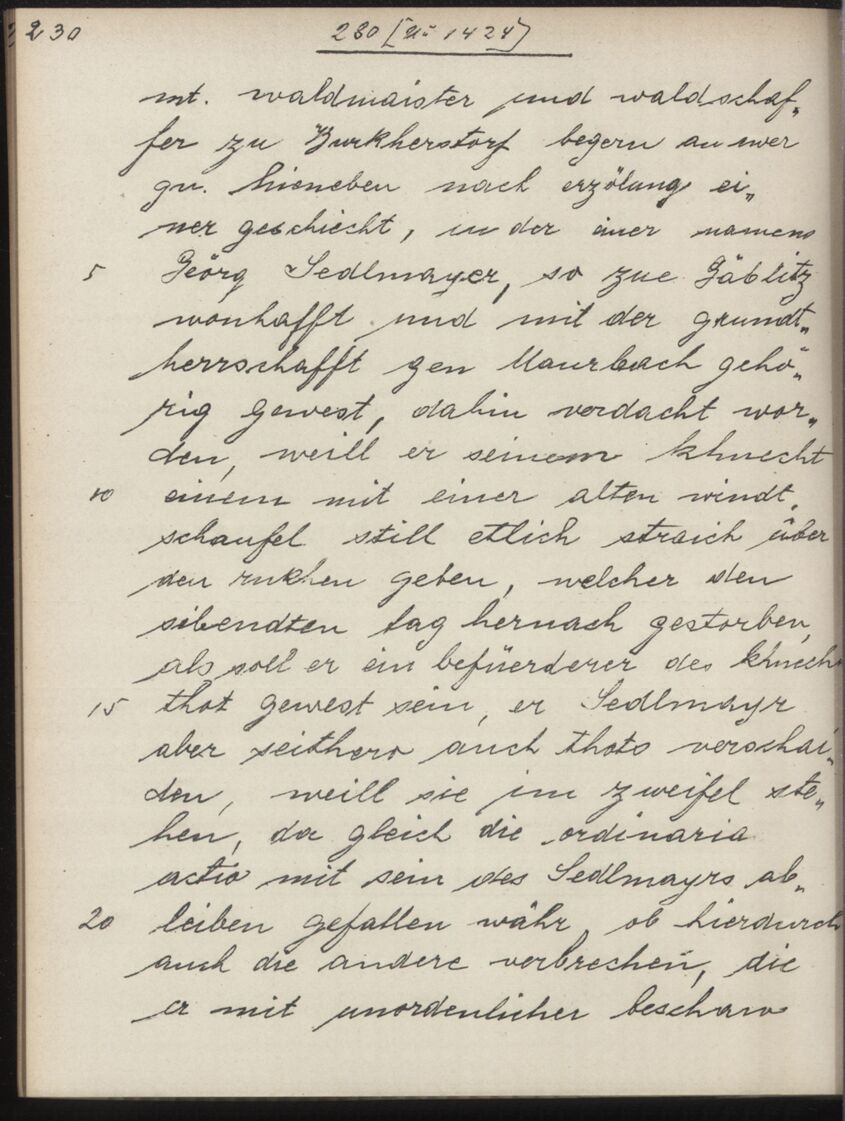 230 230 [Nr 1424]
mt. waldmaister und waldschaf„
fer zu Burkherstorf begern an wer
gn. hieneben nach erzölung ei„
ner geschiecht, in der einer namens
5 Geörg Sedlmayer, so zue Gäblitz
wonhafft und mit der grundt„
herrschafft gen Maurbach gehö„
rig gewest, dahin verdacht wor„
den, weill er seinem khnecht
10 einem mit einer alten windt„
schaufel still etlich straich über
den rukhen geben, welcher den
sibendten tag hernach gestorben,
als soll er ein befüerderer des khnech
15 thot gewest sein, er Sedlmayr
aber seithero auch thots verschai„
den, weill sie im zweifel ste„
hen, da gleich die ordinaria
actio mit sein des Sedlmayrs ab„
20 leiben gefallen währ, ob hierdurch
auch die andere verbrechen, die
er mit unordenlicher beschaw